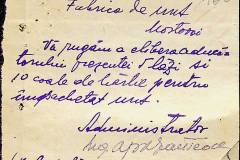 Fabrica de unt
Vă rugăm a elibera aducă-
torului prezentei 5 lăzi si
10 coale de hârtie pentru
împachetat unt.
Administrator